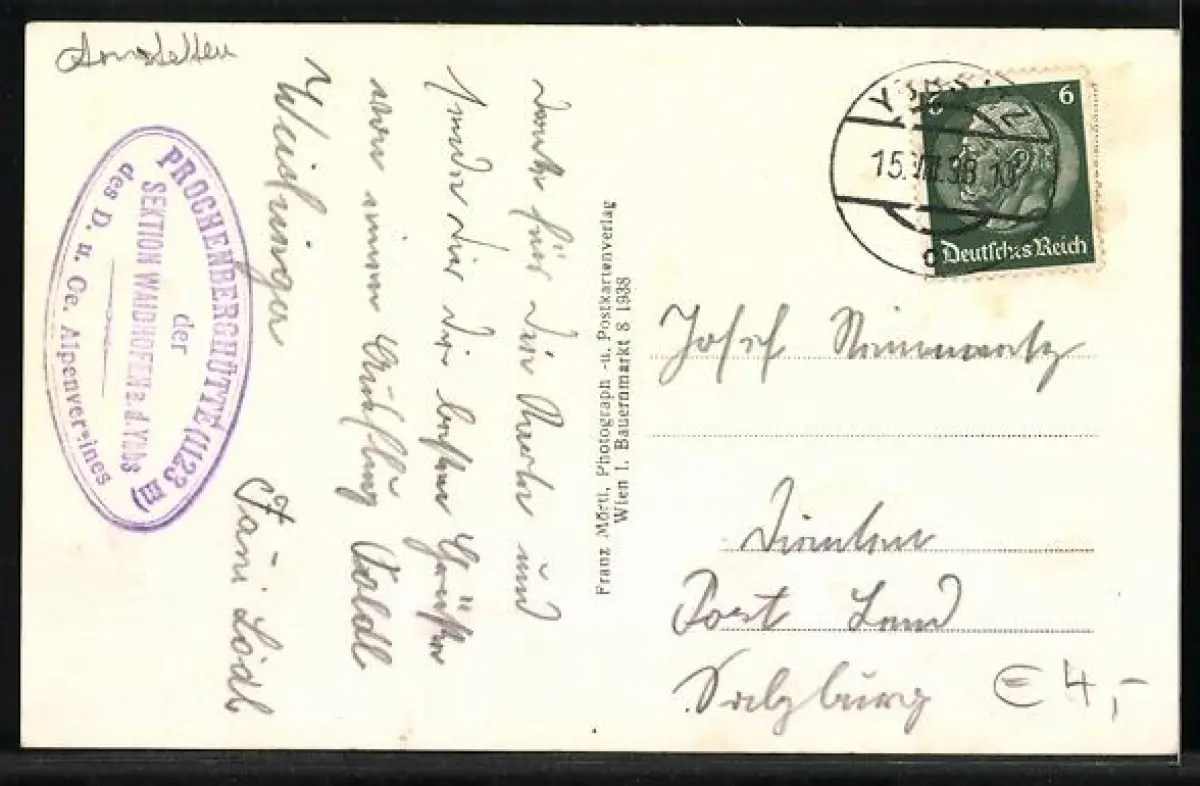 Amstetten
PROCHENBERGHÜTTE (1123 m)
der
SEKTION WAIDHOFEN a. d. Ybbs
des D. u. Oe. Alpenvereines
danke für die Karte und
sende dir die besten Grüße
von einem Ausflug Poldl
Weichinger
Fani Lödl
Franz Mörtl, Photograph -u. Postkartenverlag
Wien I. Bauernmarkt 8 1938
15.VIII.38
6
6
Deutsches Reich
Josef
Dienten
Post Lend
Salzburg
€ 4,-